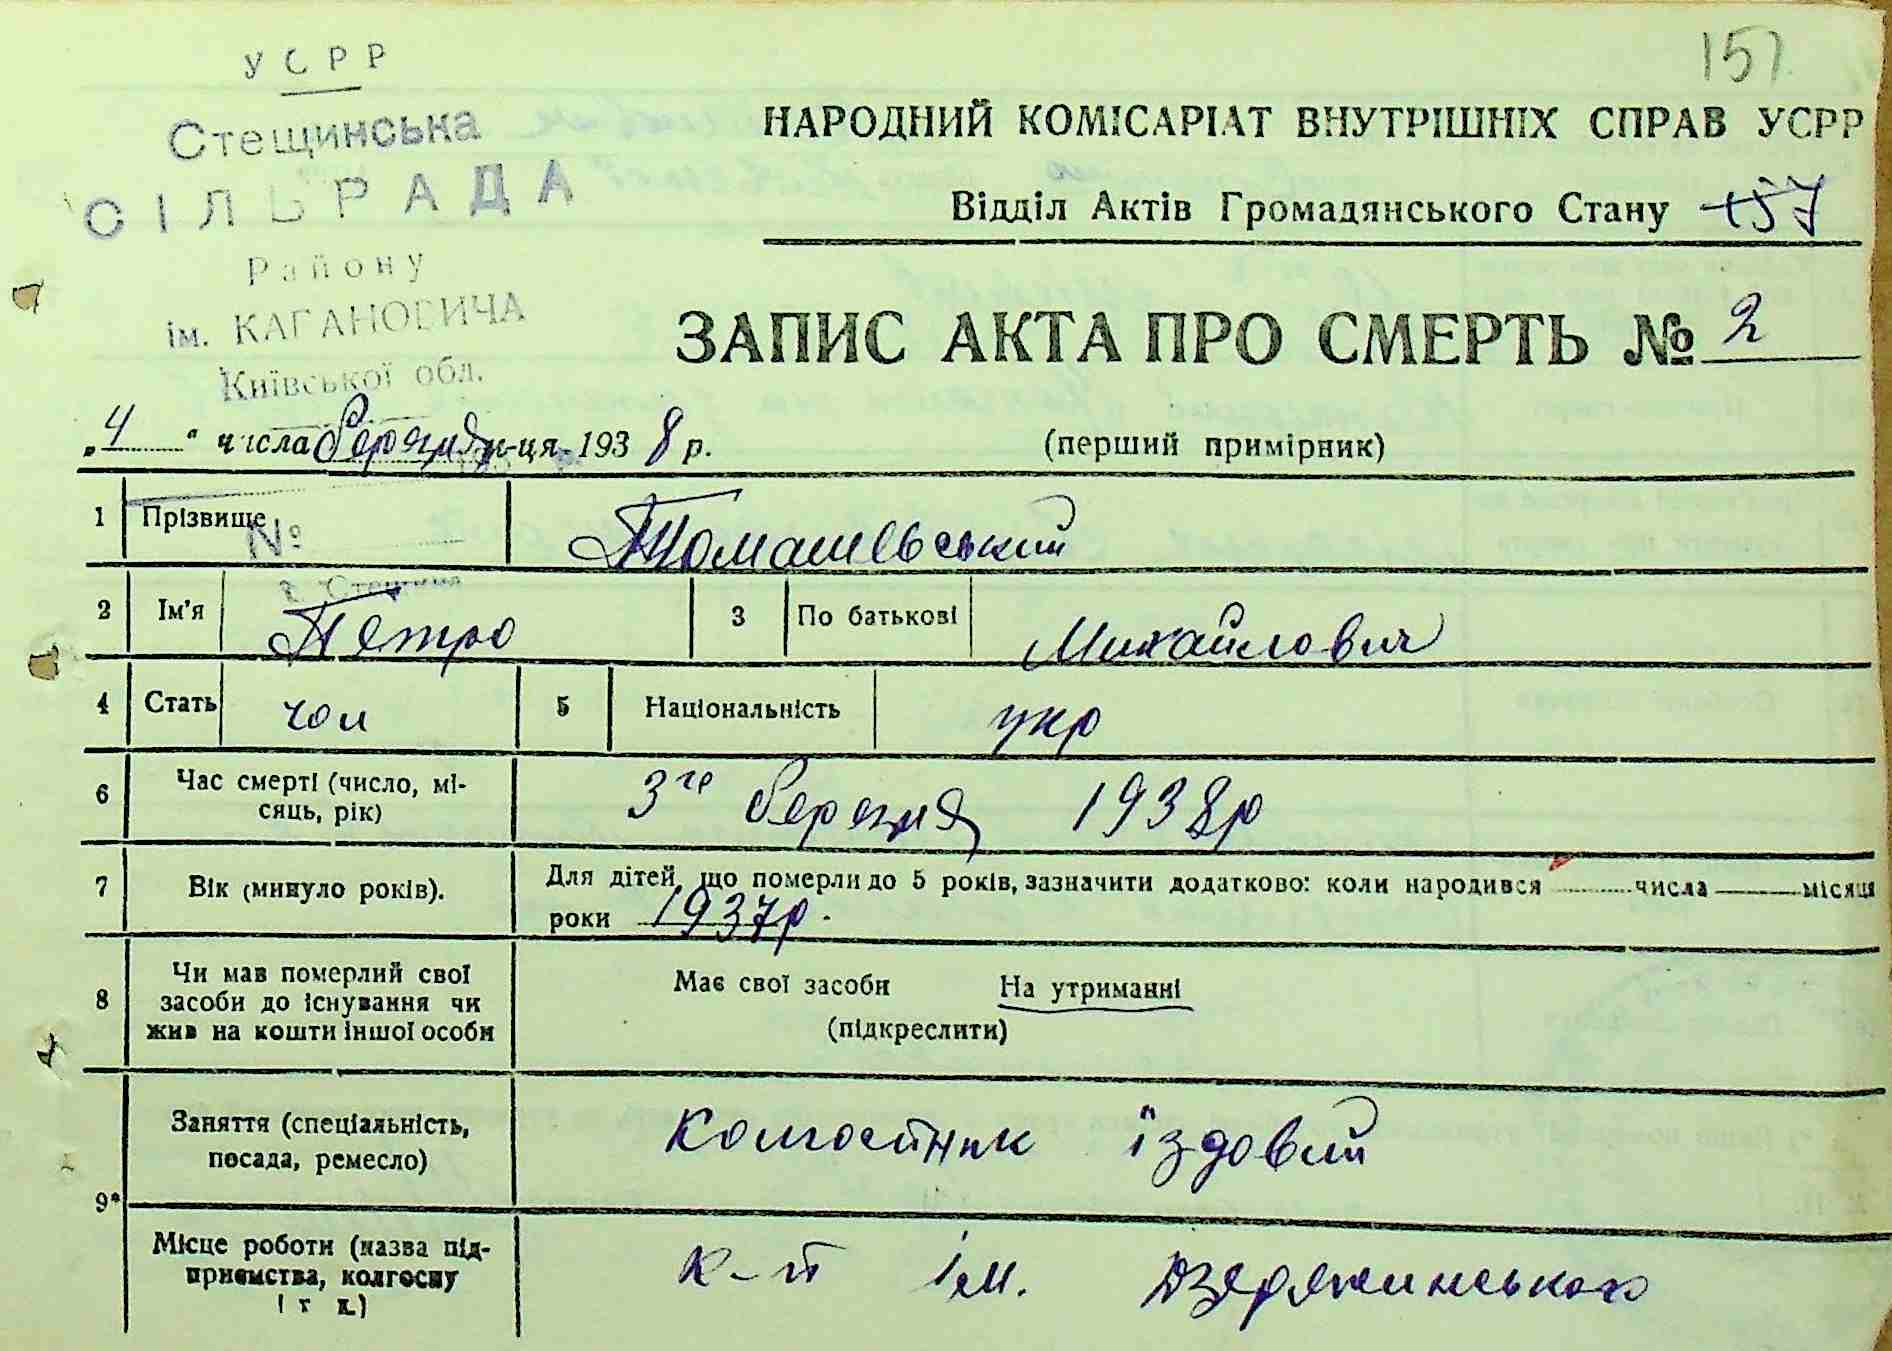 УСРР
Стещинська
СІЛЬРАДА
Району
ім. КАГАНОВИЧА
Київської обл.
157
НАРОДНИЙ КОМІСАРІАТ ВНУТРІШНІХ СПРАВ УСРР
Відділ Актів Громадянського Стану 157
ЗАПИС АКТА ПРО СМЕРТЬ № 2
„4“ числа Березня м-ця 1938 р.
(перший примірник)
1 Прізвище Томашевський
№
с. Стещина
2 Ім'я Петро 3 По батькові Михайлович
4 Стать чол 5 Національність укр
6 Час смерті (число, мі-
сяць, рік) 3го березня 1938р
7 Вік (минуло років). Для дітей, що померли до 5 років, зазначити додатково: коли народився числа місяця
роки 1937р.
8 Чи мав померлий свої
засоби до існування чи
жив на кошти іншої особи
Має свої засоби На утриманні
(підкреслити)
9* Заняття (спеціальність,
посада, ремесло) Колгоспник їздовий
Місце роботи (назва під-
приємства, колгоспу
і т п.) к-п ім. Дзержинського